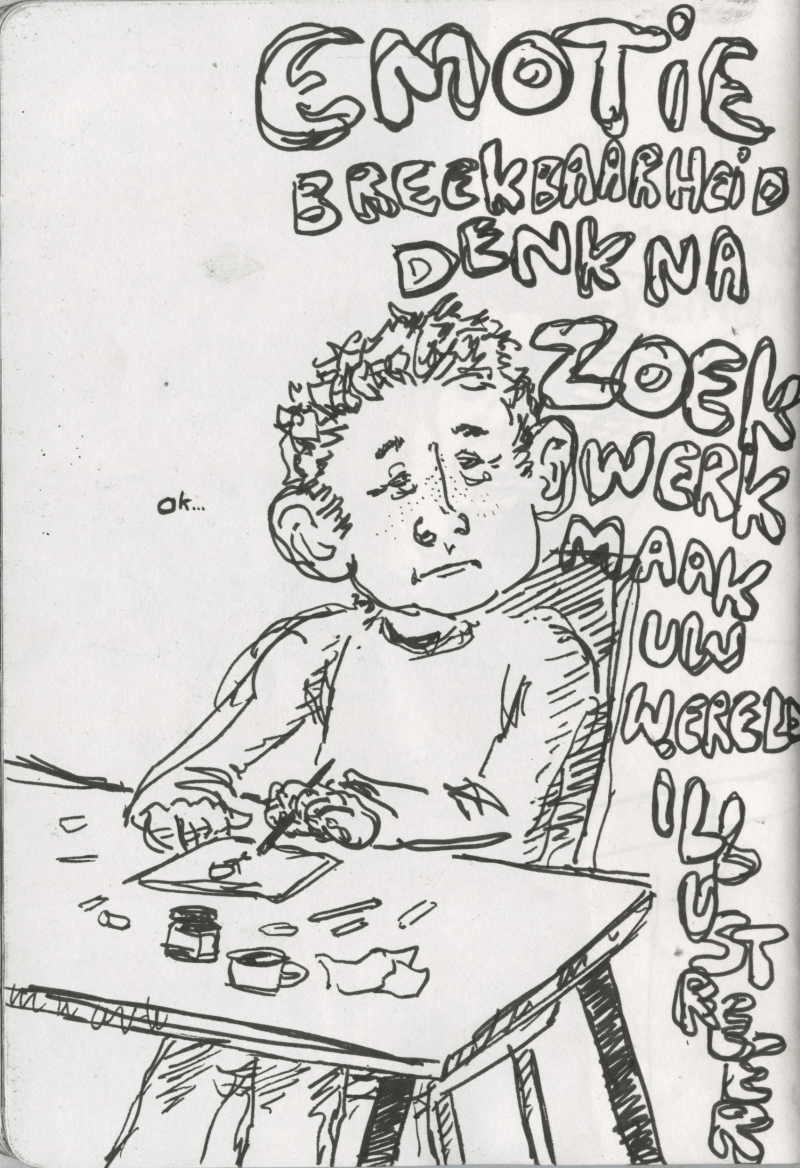 EMOTiE
BREEKBAARHEiD
DENK NA
ZOEK
WERK
MAAK
UW
WERELD
ILLUSTREER
ok...